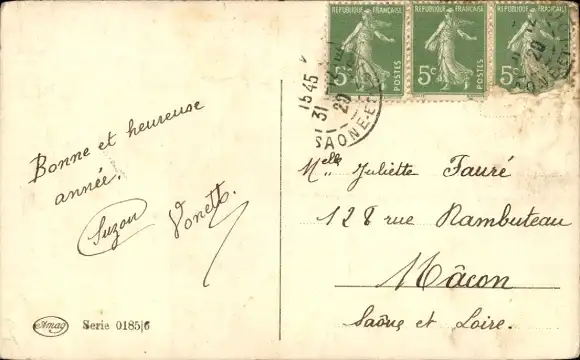 REPUBLIQUE FRANÇAISE REPUBLIQUE FRANÇAISE
5c POSTES 5c POSTES 5c
1545
31 -12
20
SAONE-ET-
20
Bonne et heureuse
année.
Suzon Vonett.
Melle Juliette Fauré
128 rue Rambuteau
Mâcon
Saône et Loire.
Amag Serie 0185/6